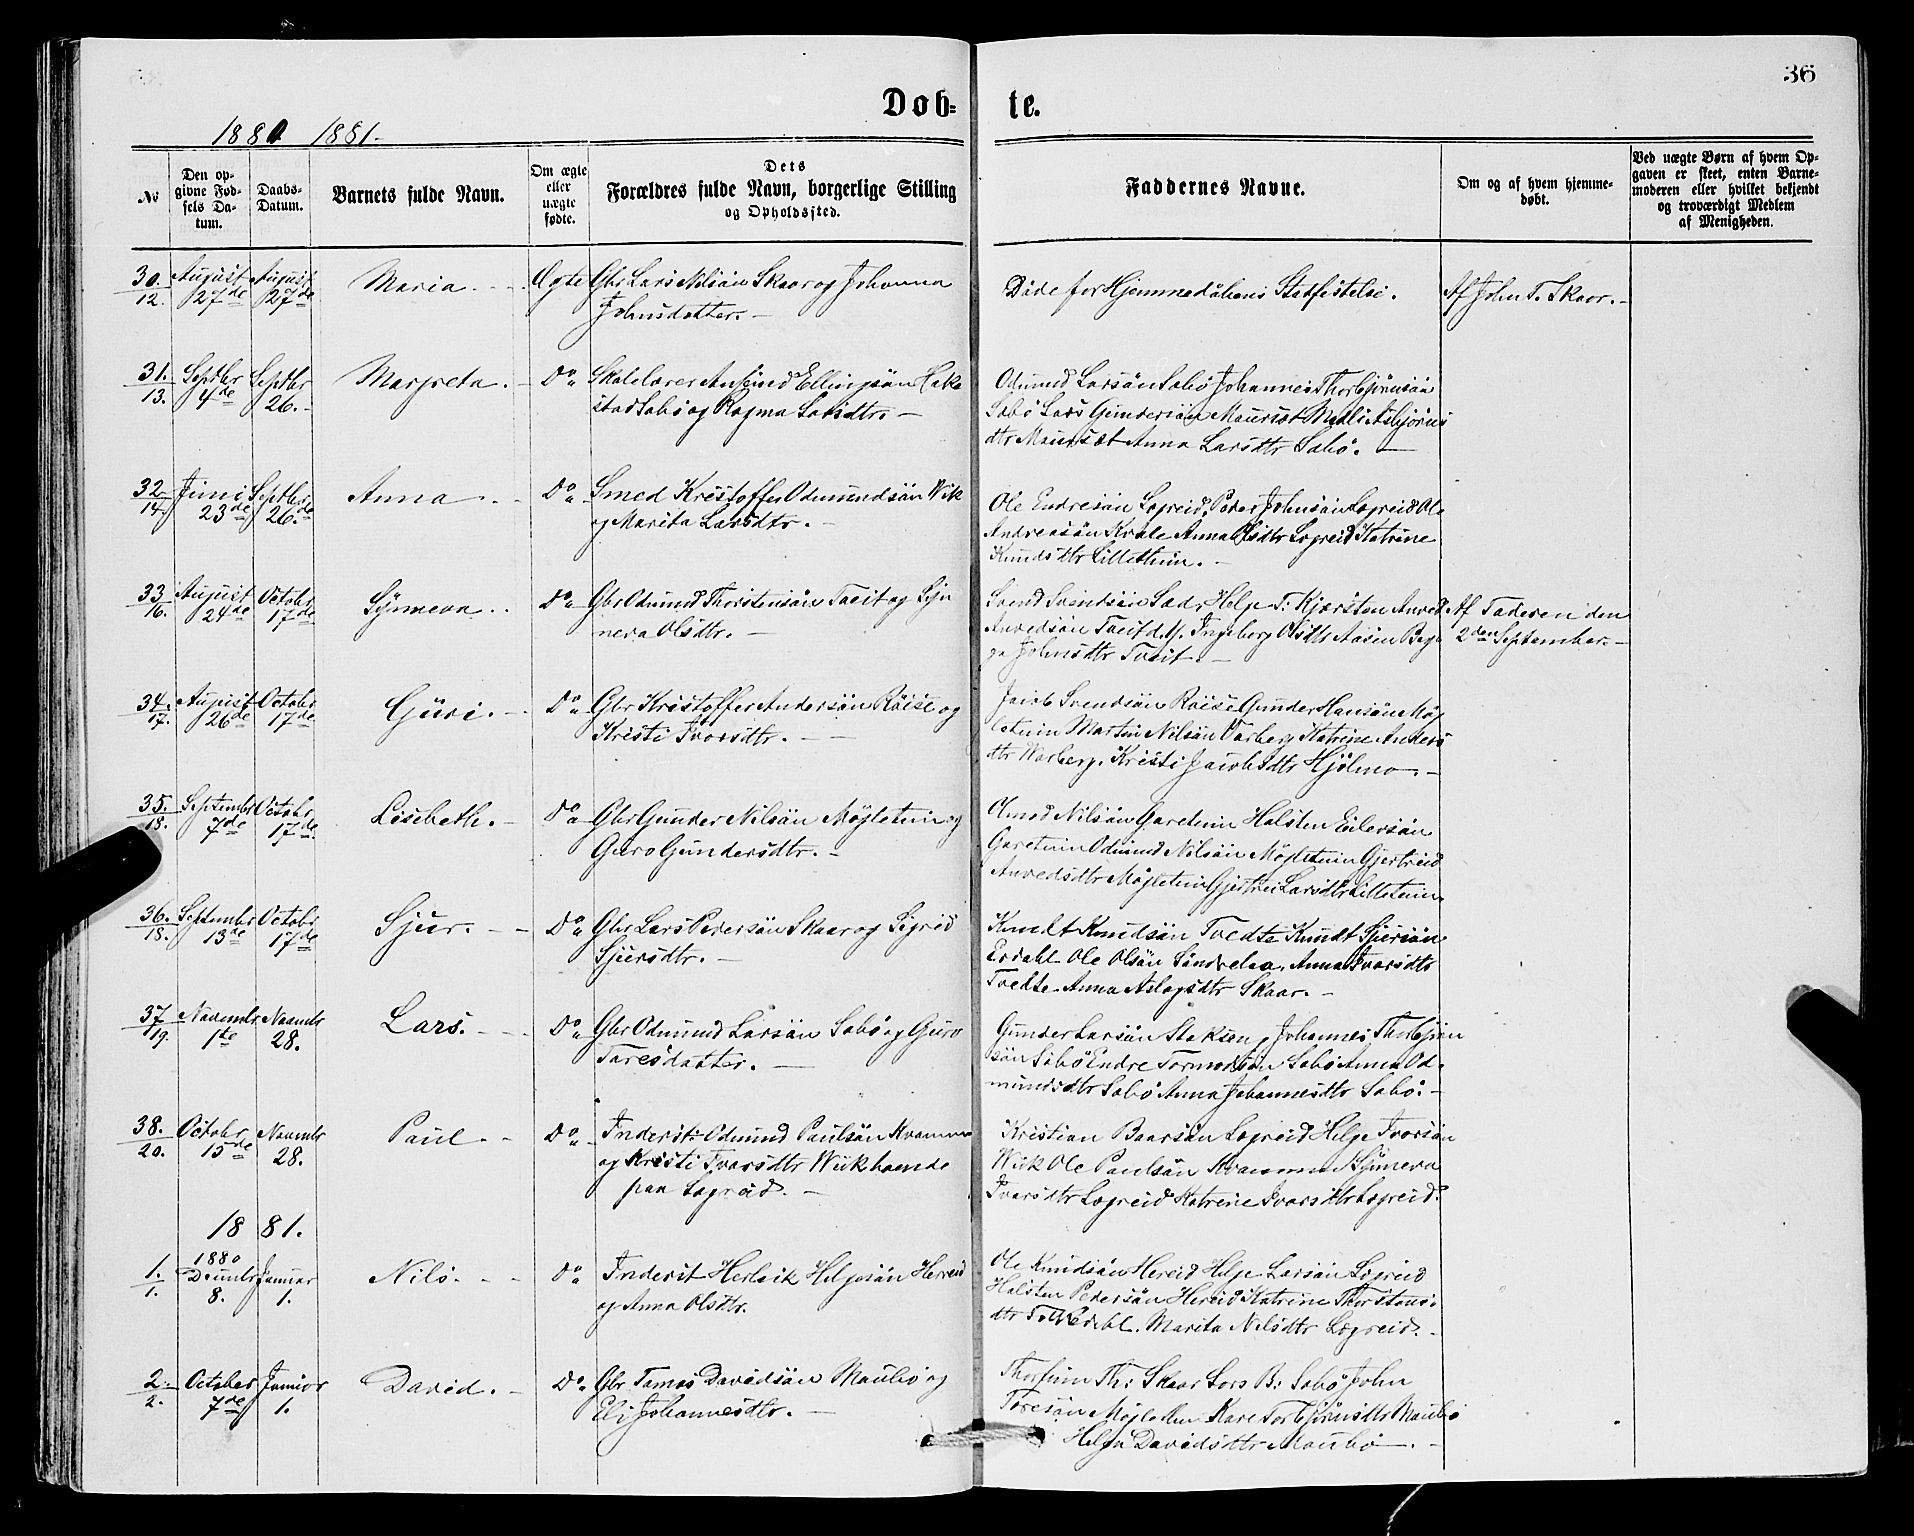 36
Döb-
te.
1880. 1881.
No
Den op-
givne Fød-
sels Da-
tum.
Daabs-
Datum.
Barnets fulde Navn.
Om ægte
eller
uægte
fødte.
Dets
Forældres fulde Navn, borgerlige Stilling
og Opholdssted.
Faddernes Navne.
Om og af hvem hjemme-
døbt.
Ved uægte Børn af hvem Op-
gaven er skeet, enten Barne-
moderen eller hvilket bekjendt
og troværdigt Medlem
af Menigheden.
30. August August Maria. Ægte Gbr Lars Nilsön Skaar og Johanna
12. 27de 27de Johnsdatter.
Döde for Hjemmedåbens Stadfestelse. Af John T. Skaar.
31. Septbr Septbr Margreta. Do Skolelærer Anfind Ellingsön
13. 4de 26. Sabö og Ragna Larsdtr.
Odmund Larsön Sabö Johannes Thorbjörnsön
Sabö Lars Gundersön Maursæt
dtr Maursæt Anna Larsdtr Sabö.
32 Juni Septbr Anna Do Smed Kristoffer Odmundsön Wik
14. 23de 26de og Marita Larsdtr.
Ole Endresön Legreid, Peder Johnsön Legreid Ole
Andreasön Kvale Anna Olsdtr Legreid Katrine
Knudsdtr Lilletuun.
33 August Octobr Synneva Do Gbr Odmund Thorstensön Tveit og Syn
16. 24de 17de neva Olsdtr.
Svend Svendsön Sæd, Helge T: Kjærsten Anved Af Faderen den
Anvedsön Tveit d.y. Ingeborg Olsdtr Aasen 2den September.
Johnsdtr Tveit.
34. August Octobr Guri. Do Gbr Kristoffer Andersön Röise og
17. 26de 17de Kristi Ivarsdtr.
Jacob Svendsön Röise Gunder Hansön Möj
letuun Martin Nilsön Varberg Katrine Anders
dtr Warberg. Kristi Jacobsdtr Hjölmo.
35. Septembr Octobr Lisebeth. Do Gbr Gunder Nilsön Möjletuun og
18. 7de 17de Guro Gundersdtr.
Amod Nilsön Garetuun Halsten Eilersön
Garetuun Odmund Nilsön Möjletuun Gjertrud
Anvedsdtr Möjletuun Gjertrei Larsdtr Lilletuun.
36. Septembr Octobr Sjur. Do Gbr Lars Pedersön Skaar og Sigrid
18. 13de 17de Sjursdtr.
Knudt Knudsön Tvedte Knudt Sjursön
Erdahl Ole Olsön Anna Ivarsdtr
Tvedte Anna Aslagsdtr Skaar.
37 Novembr Novembr Lars. Do Gbr Odmund Larsön Sabö og Guro
19. 1te 28. Toresdatter.
Gunder Larsön Johannes Thorbjörn
sön Sabö Endre Tormodsön Sabö Anna Od-
mundsdtr Sabö Anna Johannesdtr Sabö.
38. Octobr Novembr Paul. Do Inderst Odmund Paulsön Kvamme
20. 15de 28. og Kristi Ivarsdtr Wiik
paa Legreid.
Kristian Baarsön Legreid Helge Ivarsön
Wiik Ole Paulsön Kvamme Synneva
Ivarsdtr Legreid Katrine Ivarsdtr Legreid.
18 81.
1880
1. Decmbr Januar Nils. Do Inderst Herleik Helgesön Hereid
1. 8. 1. og Anna Olsdtr.
Ole Knudsön Hereid Helge Larsön Legreid
Halsten Pedersön Hereid Katrine Thorstens-
dtr Marita Nilsdtr Legreid.
2. October Januar David. Do Gbr Tomas Davidsön Maubö og
2. 7de 1. Eli Johannesdtr.
Thorfinn Th: Skaar Lars B: Sabö John
Toresön Kare Torbjörnsdtr Maubö
Helga Davidsdtr Maubö.